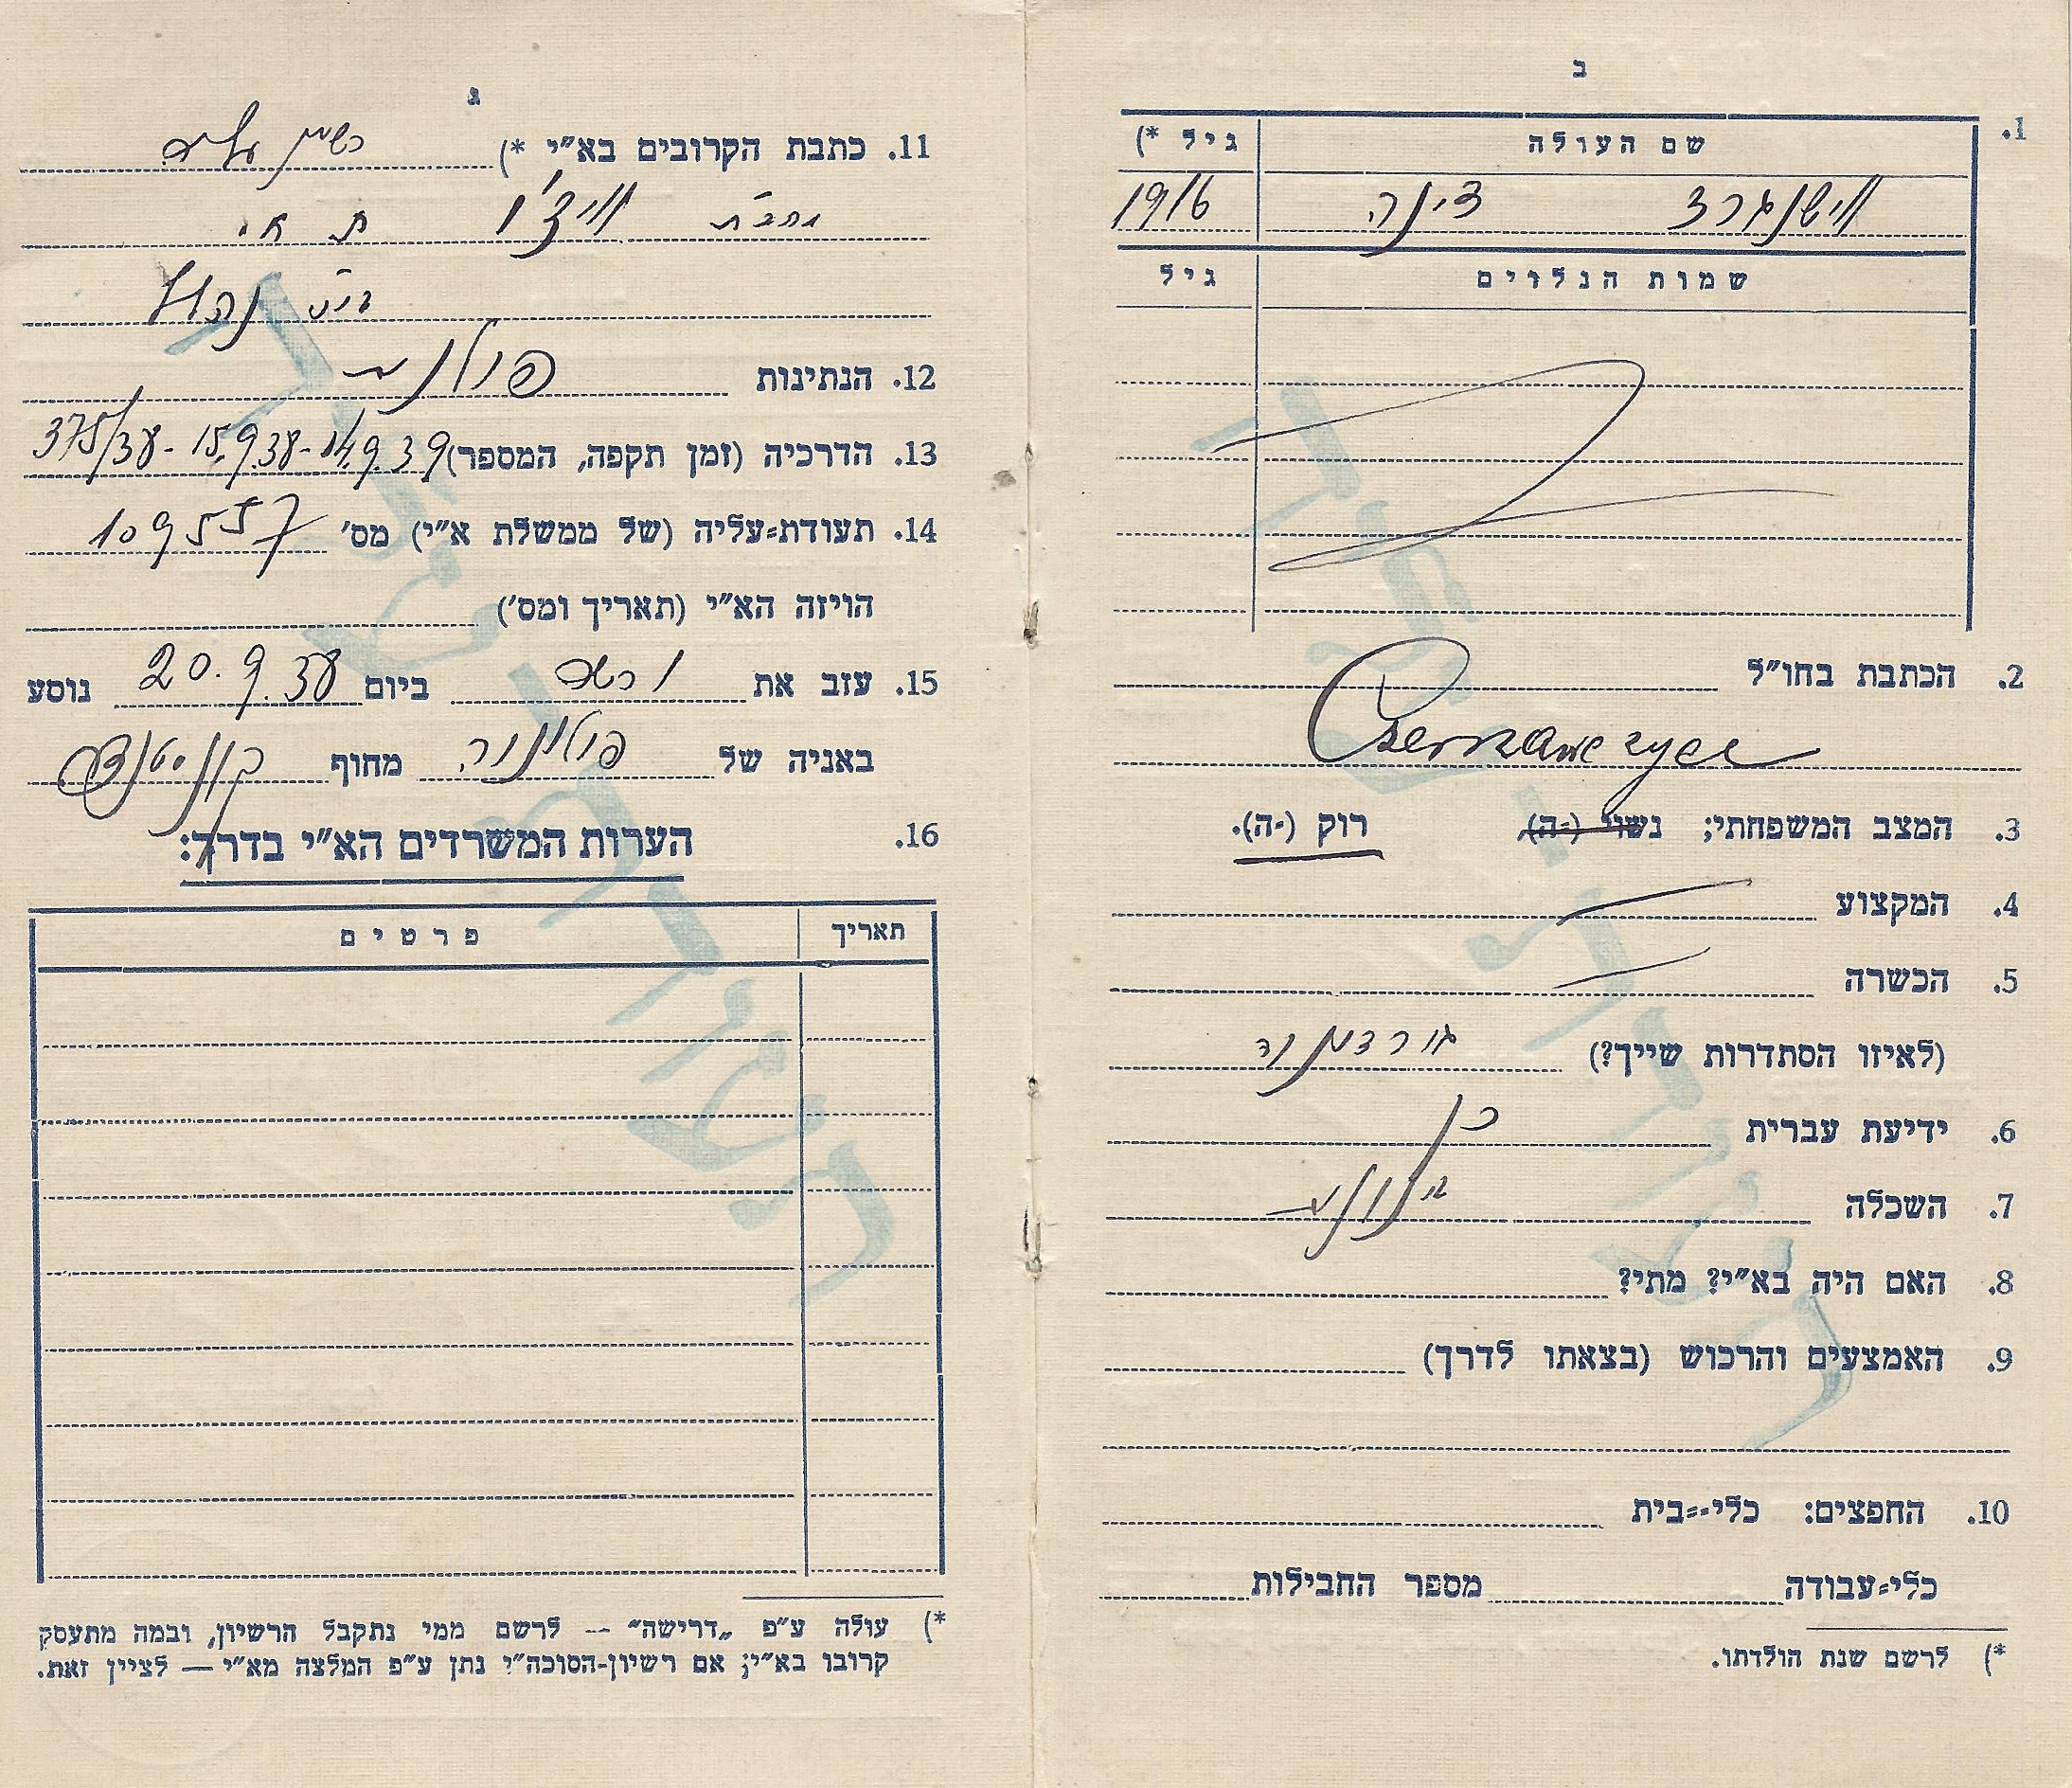 ב
1.
שם העולה גיל *)
ווישנגרד דינה 1916
שמות הנלוים גיל
2. הכתבת בחו״ל
3. המצב המשפחתי; נשוי (-ה) רוק (-ה).
4. המקצוע
5. הכשרה
(לאיזו הסתדרות שייך?) גורדוניה
6. ידיעת עברית כן
7. השכלה
8. האם היה בא״י? מתי?
9. האמצעים והרכוש (בצאתו לדרך)
10. החפצים: כלי-בית
כלי-עבודה מספר החבילות
*) לרשם שנת הולדתו.
ג
11. כתבת הקרובים בא״י *)
ויצ'ו ת א.
12. הנתינות פולנית
13. הדרכיה (זמן תקפה, המספר) 375/38 - 15.9.38 - 14.9.39
14. תעודת-עליה (של ממשלת א״י) מס׳ 109557
הויזה הא״י (תאריך ומס׳)
15. עזב את ורשה ביום 20.9.38 נוסע
באניה של פולוניה מחוף קונסטנצה
16. הערות המשרדים הא״י בדרך:
תאריך פרטים
*) עולה ע״פ „דרישה״ — לרשם ממי נתקבל הרשיון, ובמה מתעסק
קרובו בא״י; אם רשיון-הסוכה״י נתן ע״פ המלצה מא״י — לציין זאת.